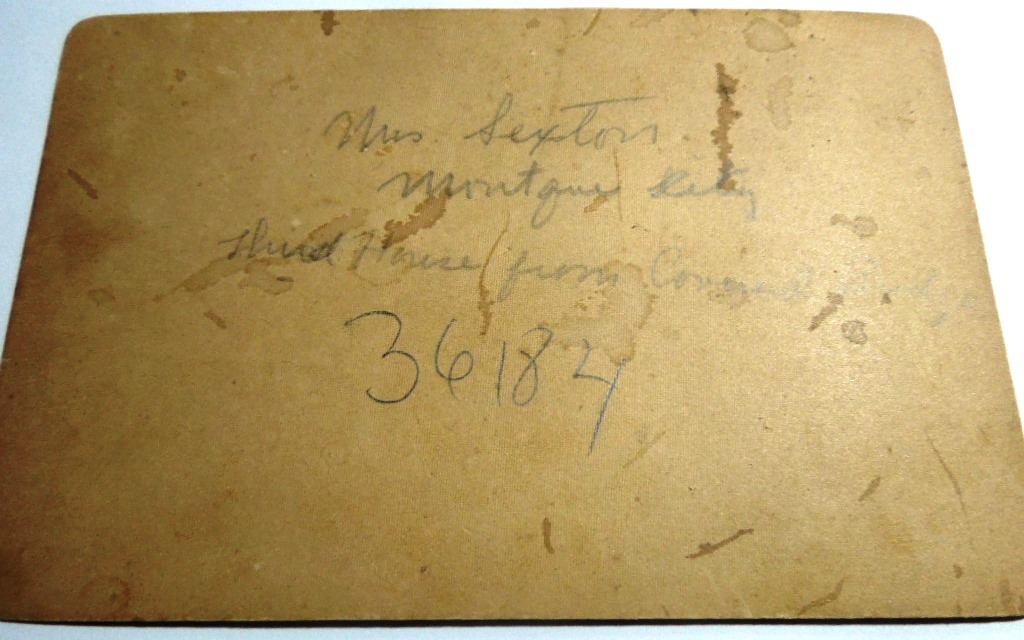 Mrs Sexton
Montague City
Third House from Covered Bridge
36184